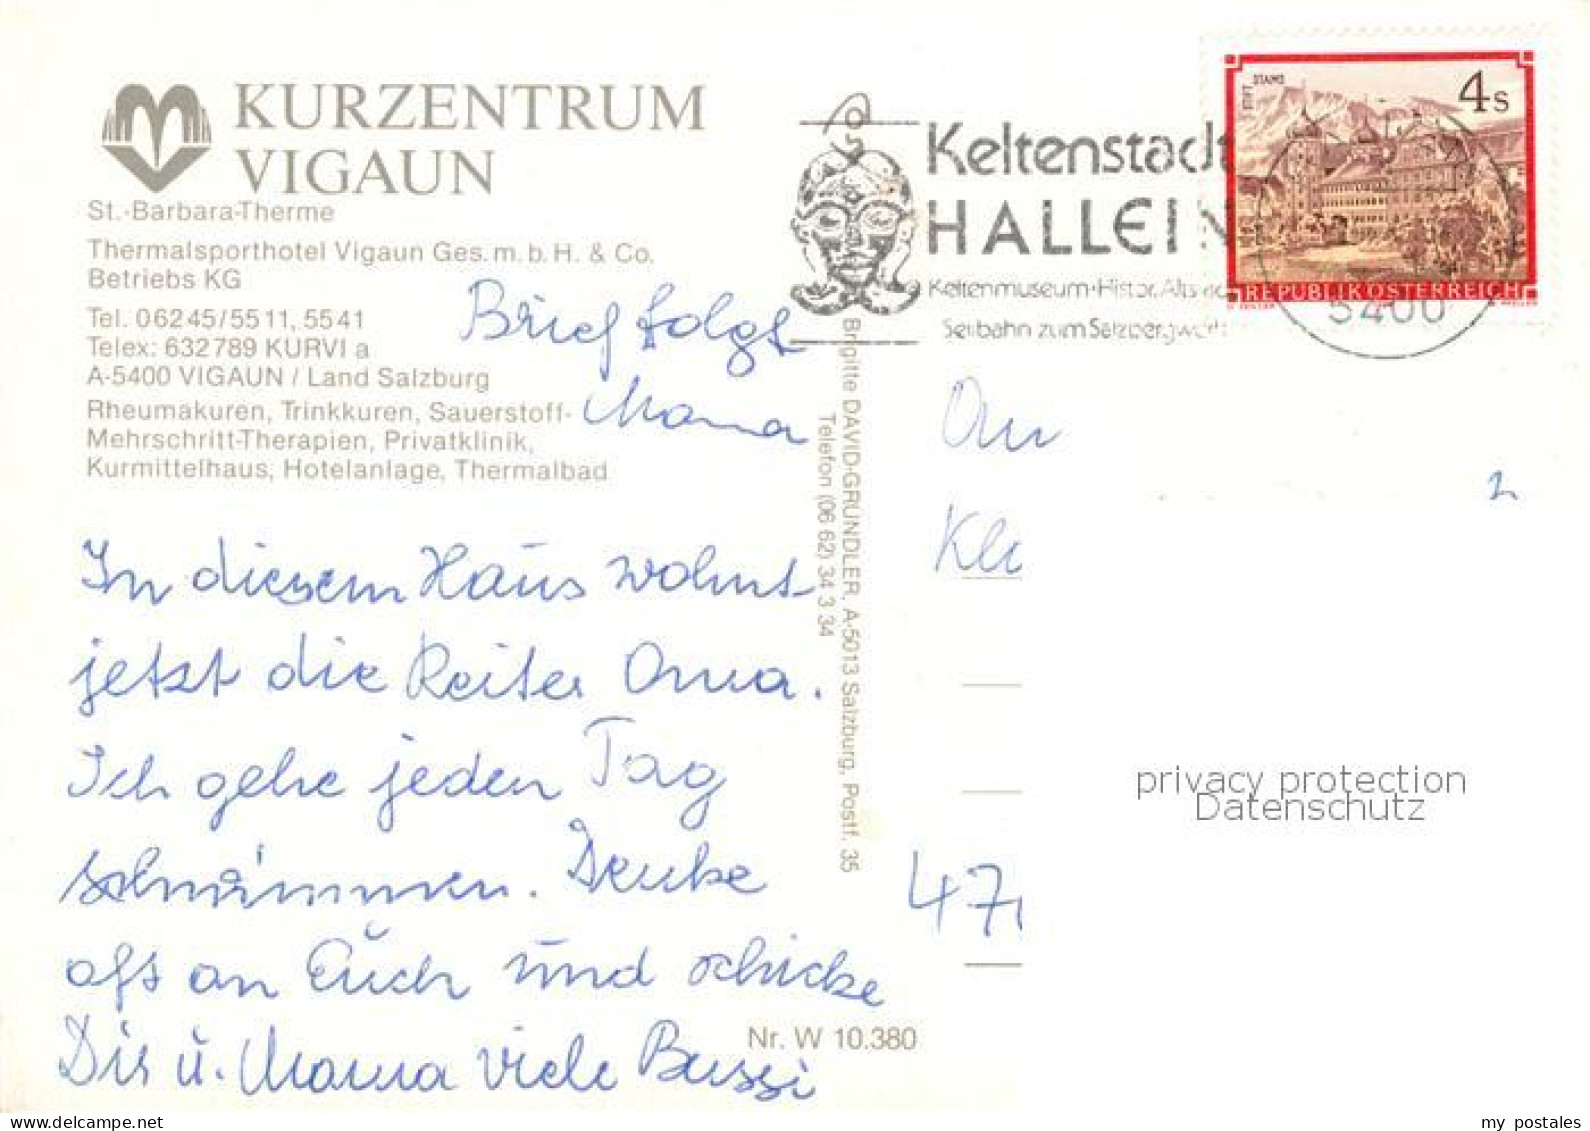 KURZENTRUM
VIGAUN
St.-Barbara-Therme
Thermalsporthotel Vigaun Ges. m. b. H. & Co.
Betriebs KG
Tel. 06245/5511, 5541
Telex: 632789 KURVI a
A-5400 VIGAUN / Land Salzburg
Rheumakuren, Trinkkuren, Sauerstoff-
Mehrschritt-Therapien, Privatklinik,
Kurmittelhaus, Hotelanlage, Thermalbad
Brief folgt
Mama
In diesem Haus wohnt
jetzt die Reiter Oma.
Ich gehe jeden Tag
schwimmen. Denke
oft an Euch und schicke
Dir u. Mama viele Bussi
Nr. W 10.380
Brigitte DAVID-GRÜNDLER, A-5013 Salzburg, Postf. 35
Telefon (06 62) 34 3 34
Keltenstadt
HALLEIN
Keltenmuseum · Histor.
Seilbahn zum Salzbergwerk
STIFT STAMS
4 S
REPUBLIK ÖSTERREICH
5400
47
privacy protection
Datenschutz
my postales